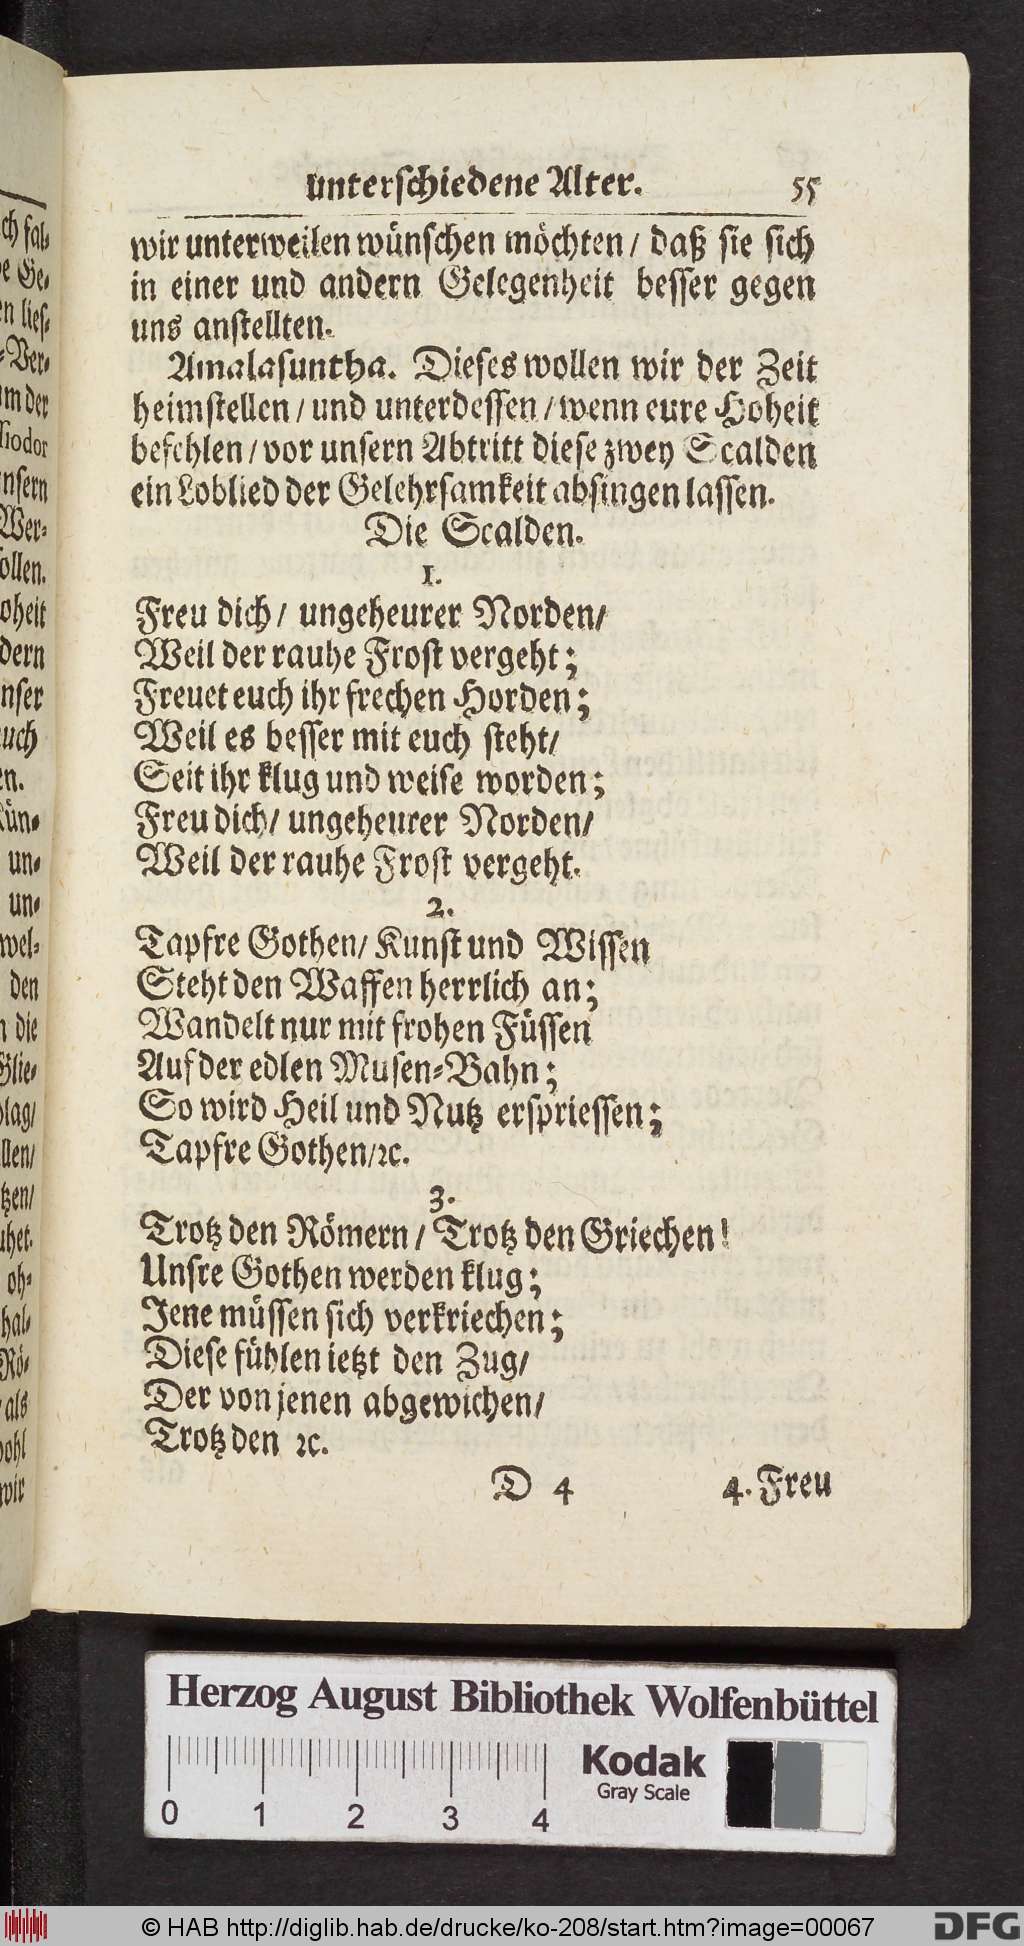 unterschiedene Alter. 55
wir unterweilen wünschen möchten / daß sie sich
in einer und andern Gelegenheit besser gegen
uns anstellten.
Amalasuntha. Dieses wollen wir der Zeit
heimstellen / und unterdessen / wenn eure Hoheit
befehlen / vor unsern Abtritt diese zwey Scalden
ein Loblied der Gelehrsamkeit absingen lassen.
Die Scalden.
1.
Freu dich / ungeheurer Norden /
Weil der rauhe Frost vergeht;
Freuet euch ihr frechen Horden;
Weil es besser mit euch steht /
Seit ihr klug und weise worden;
Freu dich / ungeheurer Norden /
Weil der rauhe Frost vergeht.
2.
Tapfre Gothen / Kunst und Wissen
Steht den Waffen herrlich an;
Wandelt nur mit frohen Füssen
Auf der edlen Musen-Bahn;
So wird Heil und Nutz erspriessen;
Tapfre Gothen / ꝛc.
3.
Trotz den Römern / Trotz den Griechen!
Unsre Gothen werden klug;
Jene müssen sich verkriechen;
Diese fühlen ietzt den Zug /
Der von jenen abgewichen /
Trotz den ꝛc.
D 4 4. Freu
ch fal-
Ge-
lies-
Ver-
m der
iodor
nsern
Wer-
ollen.
oheit
dern
nser
uch
en.
Kün-
un-
un-
wel-
den
n die
Glie-
lag /
llen /
tzen /
uhet.
oh-
hal-
Rö-
als
wohl
wir
Herzog August Bibliothek Wolfenbüttel
Kodak
Gray Scale
0 1 2 3 4
© HAB http://diglib.hab.de/drucke/ko-208/start.htm?image=00067
DFG